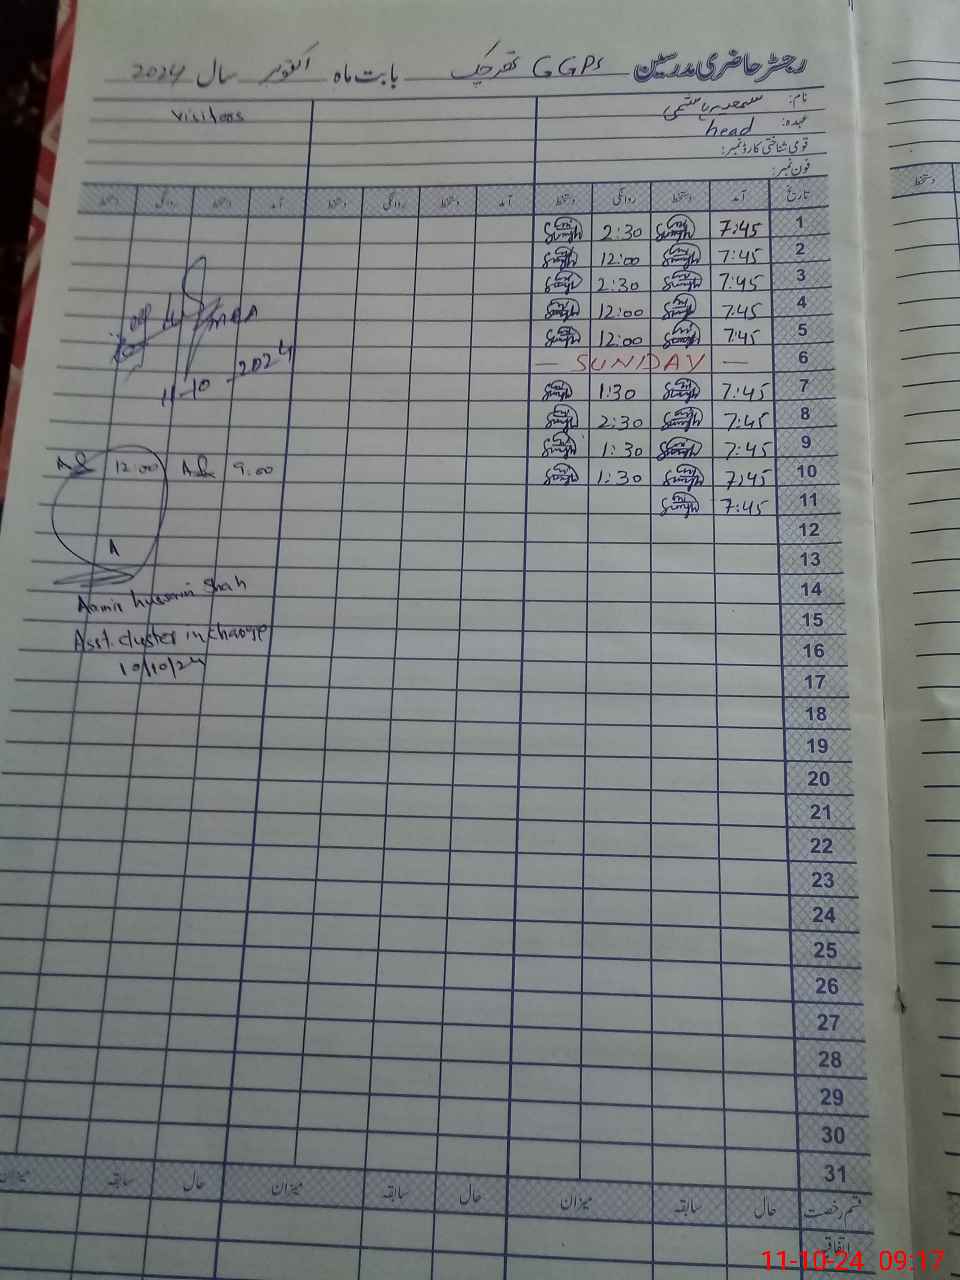 رجسٹر حاضری مدرسین GGPS بابت ماہ اکتوبر سال 2024
نام:
عہدہ: head
قومی شناختی کارڈ نمبر:
فون نمبر:
visitors
تاریخ آمد دستخط روانگی دستخط آمد دستخط روانگی دستخط آمد دستخط روانگی دستخط
1 7:45 2:30
2 7:45 12:00
3 7:45 2:30
4 7:45 12:00
5 7:45 12:00
6 — SUNDAY —
7 7:45 1:30
8 7:45 2:30
9 7:45 1:30
10 7:45 1:30 9:00 12:00
11 7:45
12
13
14
15
16
17
18
19
20
21
22
23
24
25
26
27
28
29
30
31
11-10-2024
Aamir hussain Shah
Asst. cluster incharge
10/10/24
قسم رخصت حال سابقہ میزان حال سابقہ میزان حال سابقہ میزان
اتفاقیہ
دستخط
11-10-24 09:17